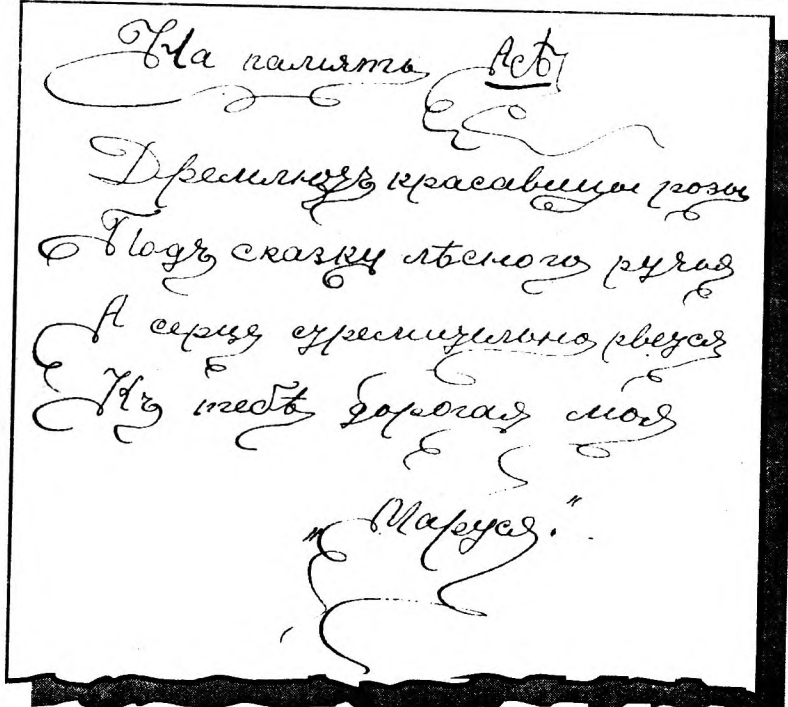 На память Асѣ
Дремлютъ красавицы розы
Подъ сказку лѣсного ручья
А серце стремительно рвется
Къ тебѣ дорогая моя
„Маруся."